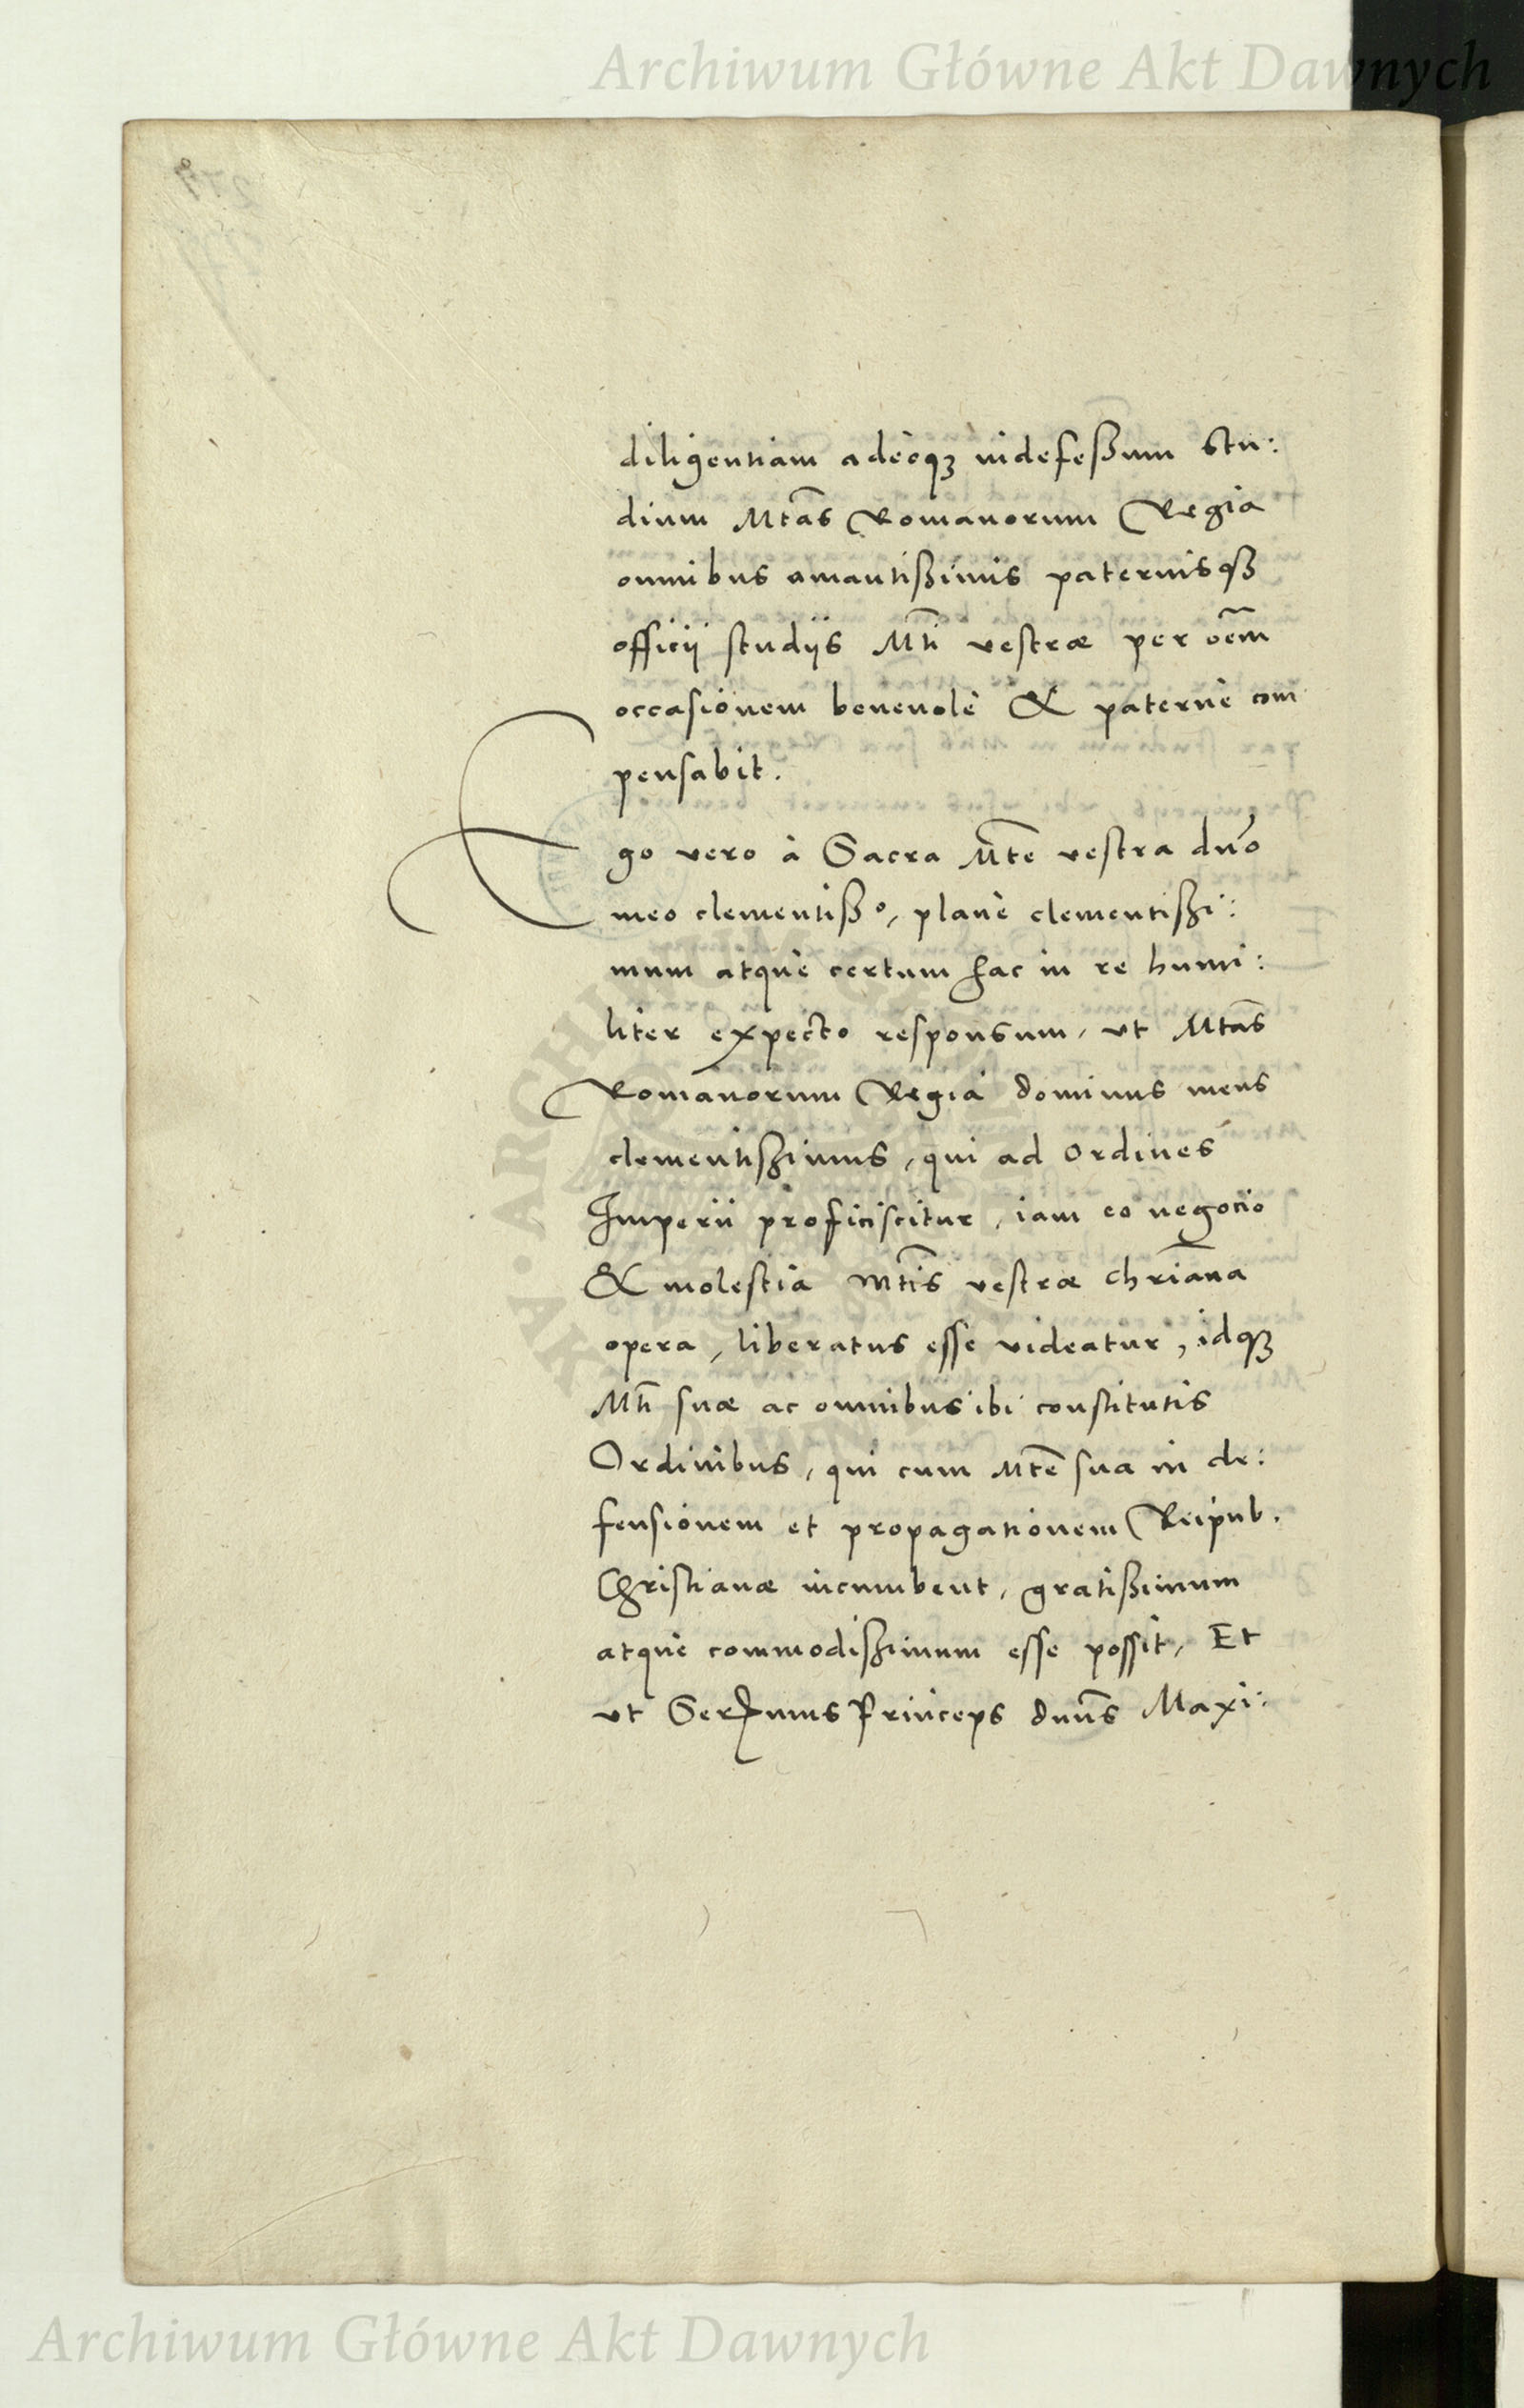 Archiwum Główne Akt Dawnych
diligentiam adeoq₃ indefeßum stu:
dium Mtās Romanorum Regia
omnibus amantißimis paternisqȝ
officij studijs Mtī vestræ per oēm
occasionem beneuolè & paternè com
pensabit.
Ego vero à Sacra Mtē vestra dnō
meo clementißº, planè clementißi:
mum atque certum hac in re humi:
liter expecto responsum, vt Mtās
Romanorum Regia dominus meus
clementißimus, qui ad Ordines
Imperii proficiscitur, iam eo negocio
& molestia Mtīs vestræ chrīana
opera, liberatus esse videatur, idqȝ
Mtī suæ ac omnibus ibi constitutis
Ordinibus, qui cum Mtē sua in de:
fensionem et propagationem Reipub.
Christianæ incumbent, gratißimum
atque commodißimum esse possit, Et
vt Serᵐᵘˢ Princeps dnūs Maxi:
Archiwum Główne Akt Dawnych